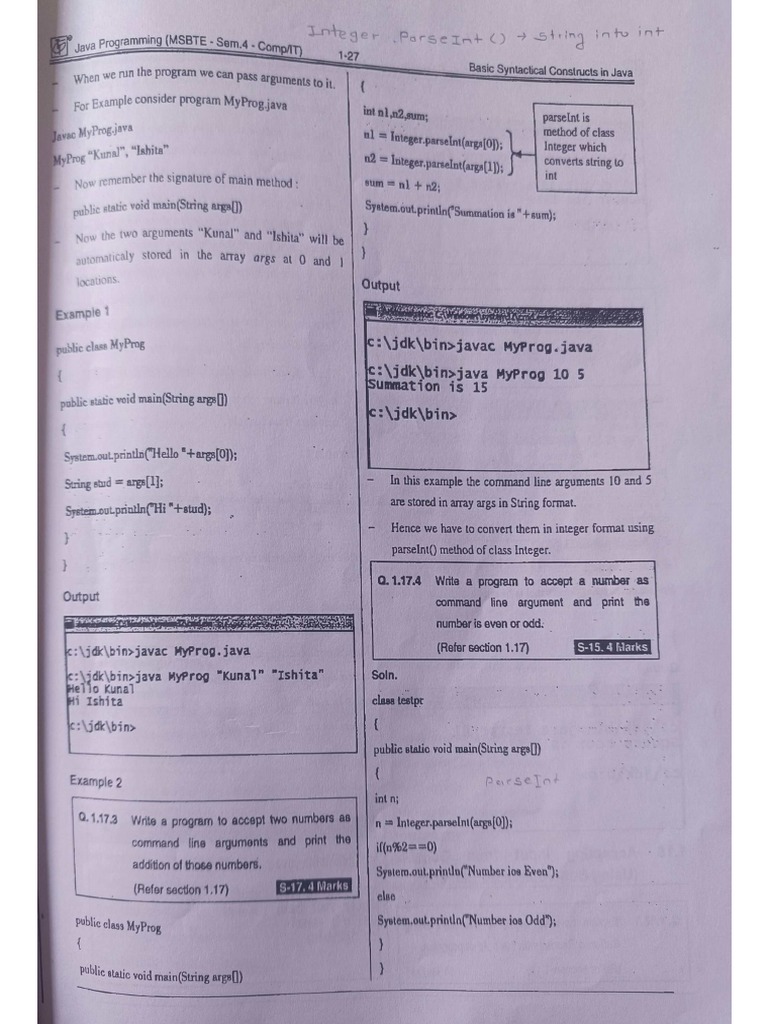 Integer .ParseInt () → string into int
Java Programming (MSBTE - Sem.4 - Comp/IT)
1-27
Basic Syntactical Constructs in Java
– When we run the program we can pass arguments to it.
– For Example consider program MyProg.java
Javac MyProg.java
MyProg "Kunal", "Ishita"
– Now remember the signature of main method :
public static void main(String args[])
– Now the two arguments "Kunal" and "Ishita" will be
automaticaly stored in the array args at 0 and 1
locations.
Example 1
public class MyProg
{
public static void main(String args[])
{
System.out.println("Hello "+args[0]);
String stud = args[1];
System.out.println("Hi "+stud);
}
}
Output
c:\jdk\bin>javac MyProg.java
c:\jdk\bin>java MyProg "Kunal" "Ishita"
Hello Kunal
Hi Ishita
c:\jdk\bin>
Example 2
Q. 1.17.3 Write a program to accept two numbers as
command line arguments and print the
addition of those numbers.
(Refer section 1.17) S-17. 4 Marks
public class MyProg
{
public static void main(String args[])
{
int n1,n2,sum;
n1 = Integer.parseInt(args[0]);
n2 = Integer.parseInt(args[1]);
sum = n1 + n2;
System.out.println("Summation is "+sum);
}
}
parseInt is
method of class
Integer which
converts string to
int
Output
c:\jdk\bin>javac MyProg.java
c:\jdk\bin>java MyProg 10 5
Summation is 15
c:\jdk\bin>
– In this example the command line arguments 10 and 5
are stored in array args in String format.
– Hence we have to convert them in integer format using
parseInt() method of class Integer.
Q. 1.17.4 Write a program to accept a number as
command line argument and print the
number is even or odd.
(Refer section 1.17) S-15. 4 Marks
Soln.
class testpr
{
public static void main(String args[])
{
ParseInt
int n;
n = Integer.parseInt(args[0]);
if(n%2==0)
System.out.println("Number ios Even");
else
System.out.println("Number ios Odd");
}
}